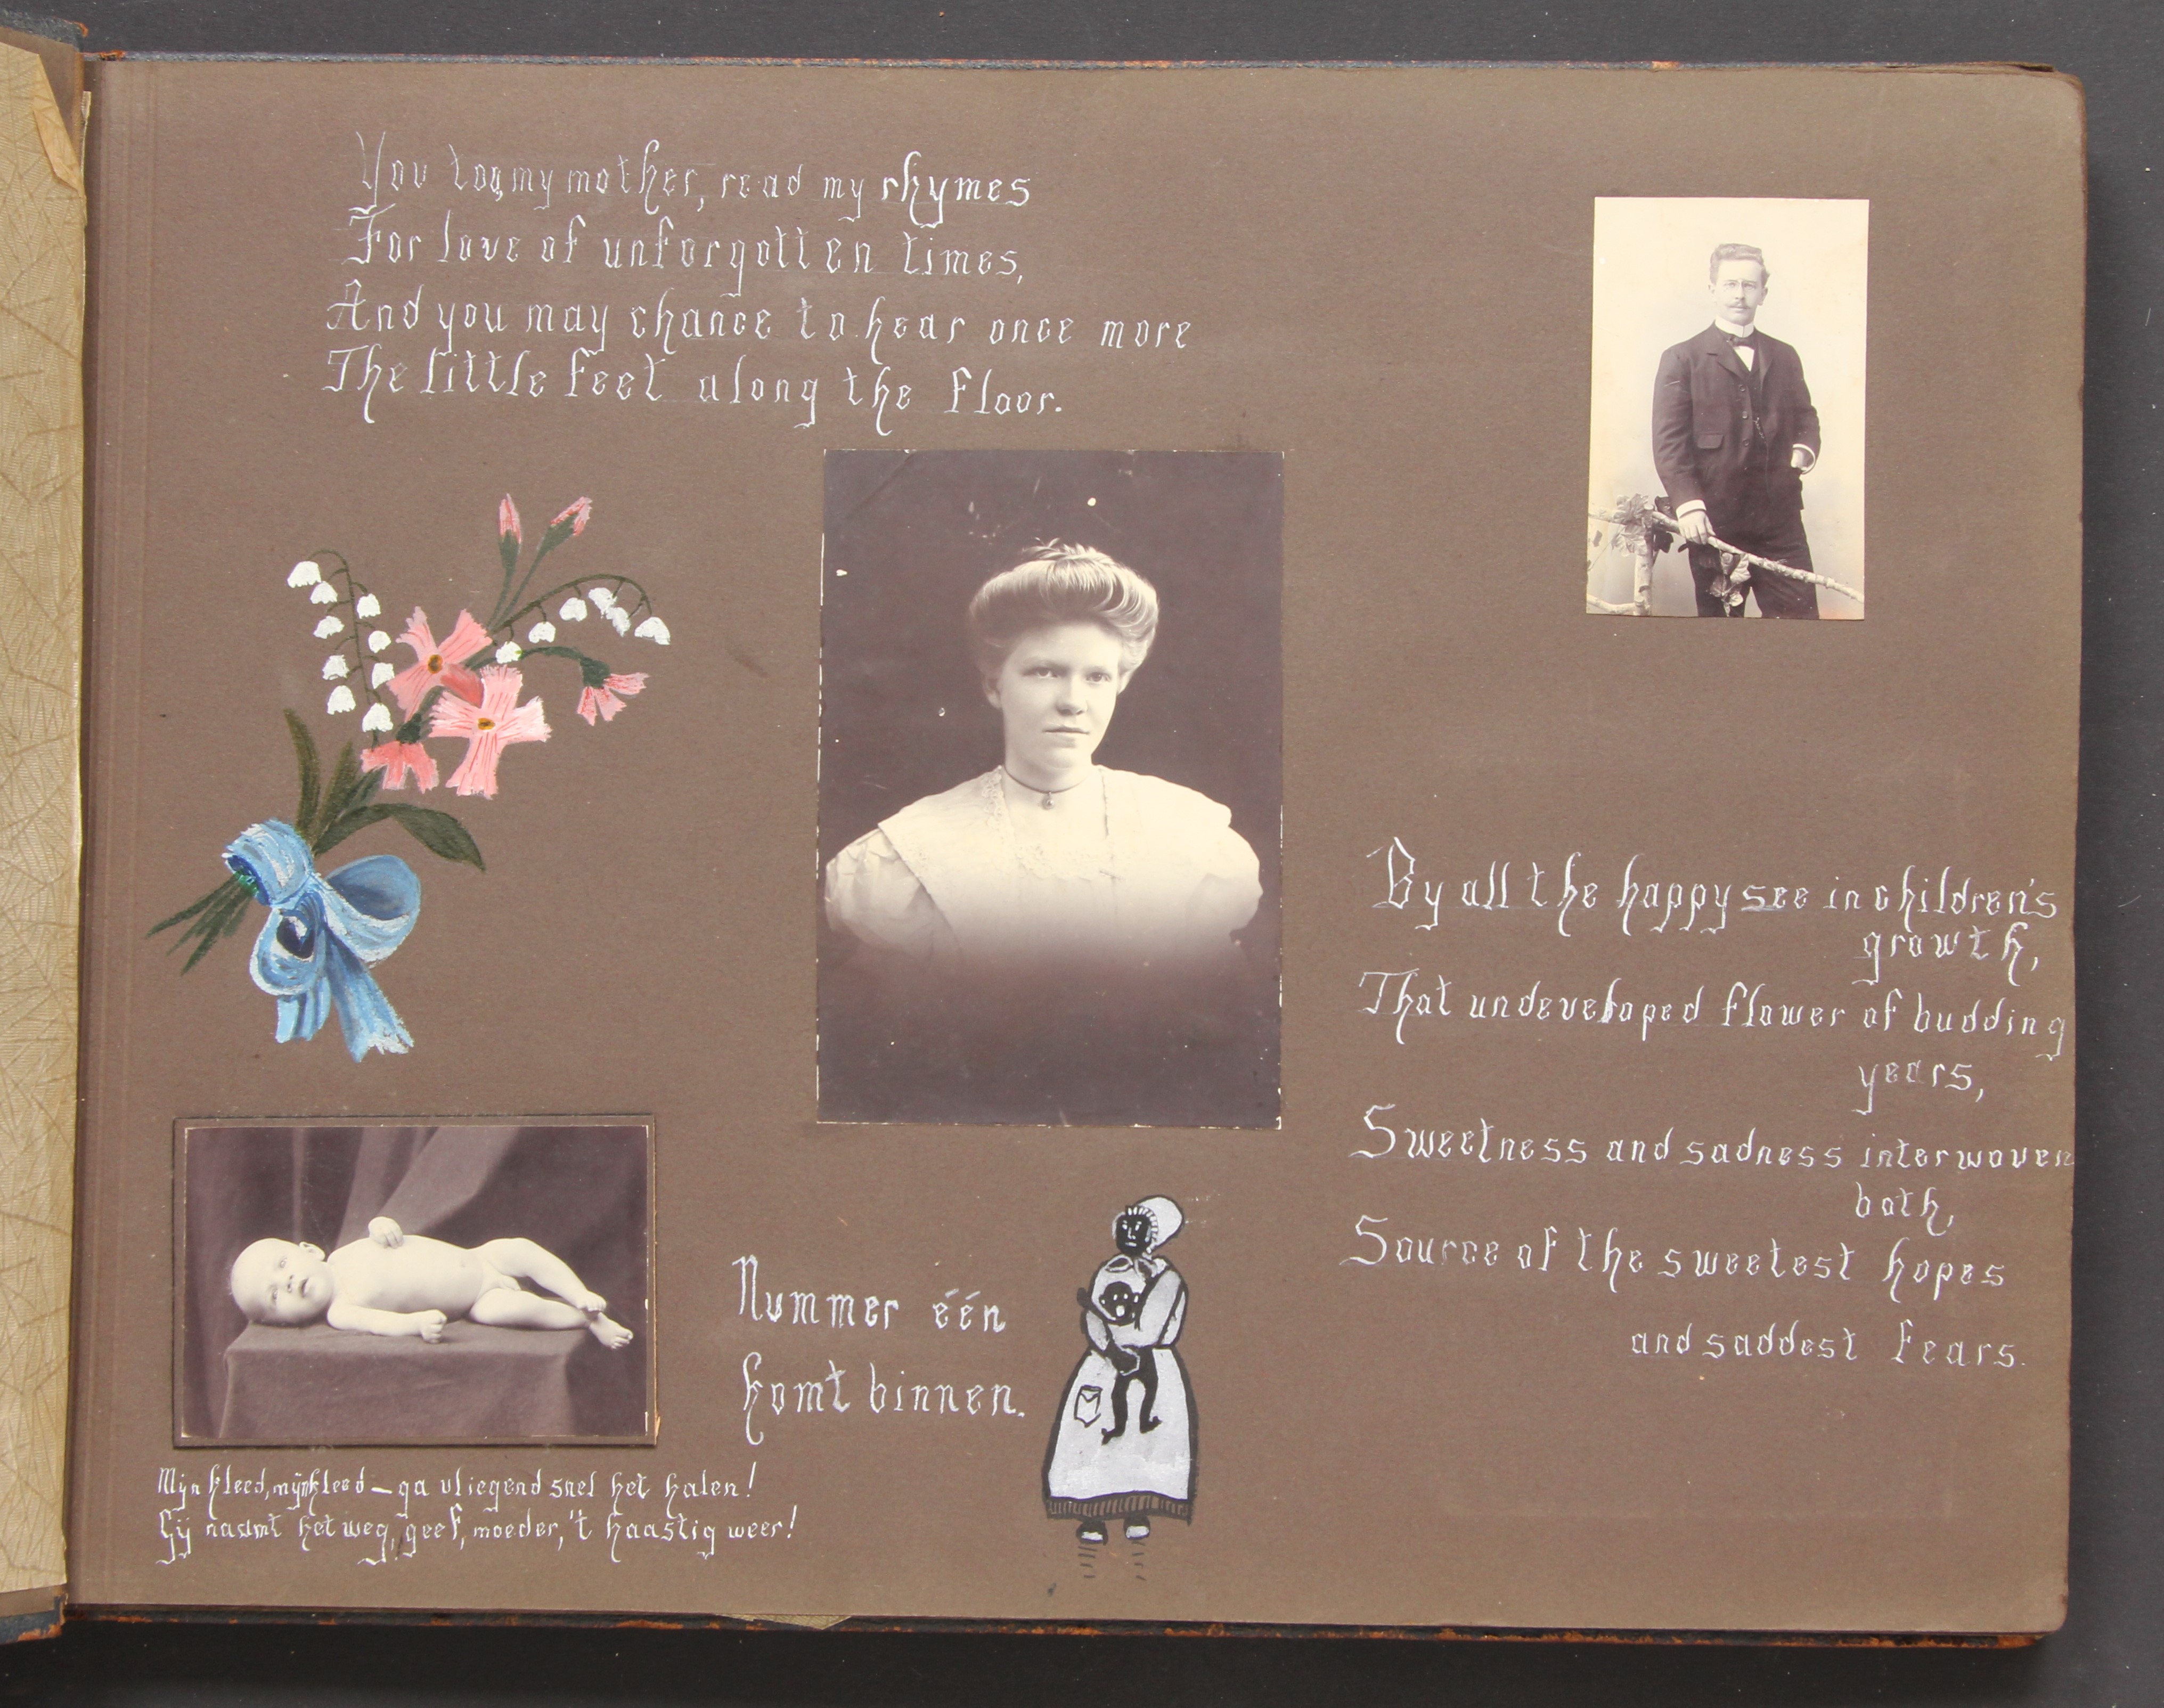 You too, my mother, read my rhymes
For love of unforgotten times,
And you may chance to hear once more
The little feet along the floor.
By all the happy see in children's
growth,
That undeveloped flower of budding
years,
Sweetness and sadness interwoven
both,
Source of the sweetest hopes
and saddest fears.
Nummer één
komt binnen.
Mijn kleed, mijn kleed – ga vliegend snel het halen!
Gij naamt het weg, geef, moeder, 't haastig weer!